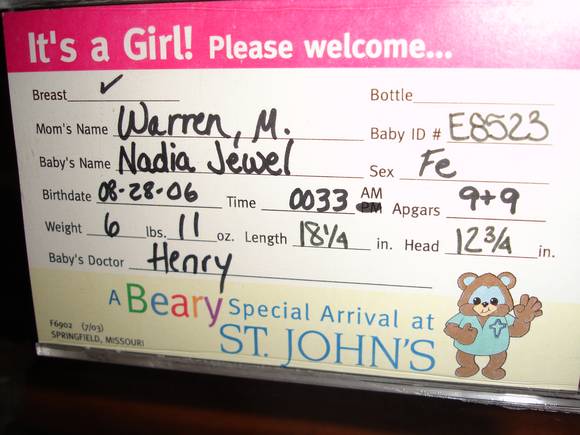 It's a Girl! Please welcome...
Breast ✓ Bottle
Mom's Name Warren, M. Baby ID # E8523
Baby's Name Nadia Jewel Sex Fe
Birthdate 08-28-06 Time 0033 AM PM Apgars 9+9
Weight 6 lbs. 11 oz. Length 18 1/4 in. Head 12 3/4 in.
Baby's Doctor Henry
A Beary Special Arrival at
ST. JOHN'S
F6902 (7/03)
SPRINGFIELD, MISSOURI